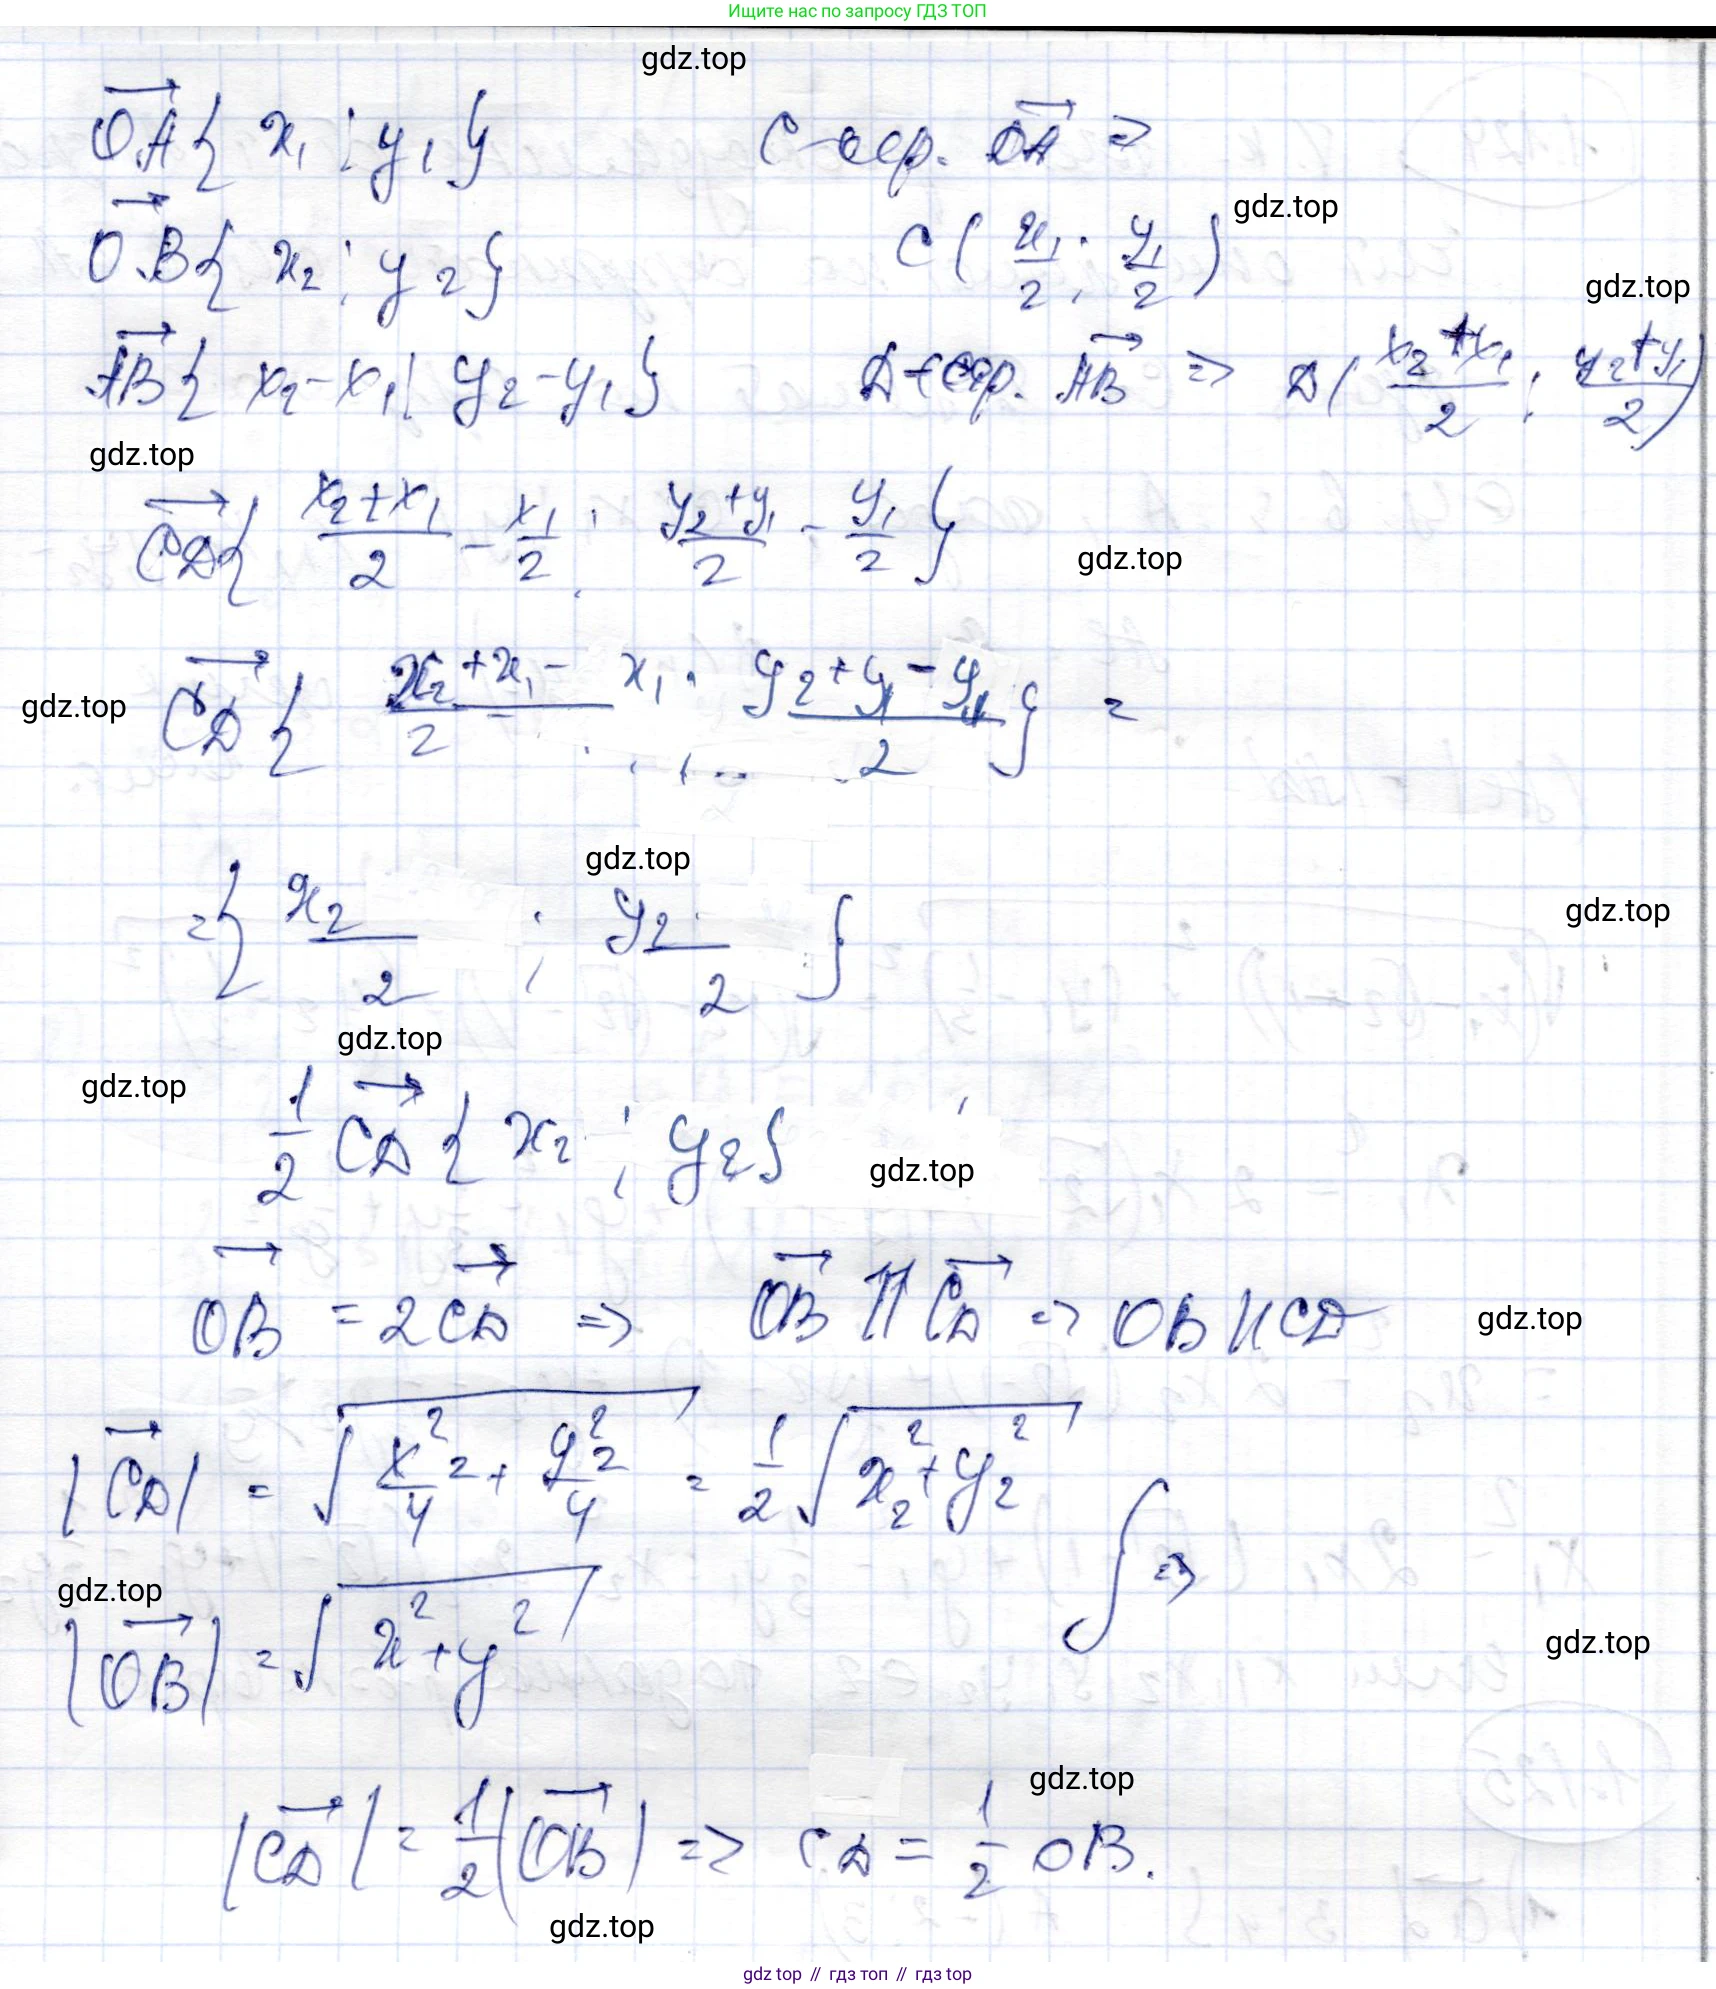 Ищите нас по запросу ГДЗ ТОП
gdz.top
OA{ x₁ ; y₁ } C - сер. OA ⇒
OB{ x₂ ; y₂ } C ( x₁/2 ; y₁/2 ) gdz.top
gdz.top
AB{ x₂ - x₁ ; y₂ - y₁ } D - сер. AB ⇒ D ( x₂ + x₁/2 ; y₂ + y₁/2 )
gdz.top
CD{ x₂ + x₁/2 - x₁/2 ; y₂ + y₁/2 - y₁/2 } gdz.top
gdz.top CD{ x₂ + x₁ - x₁/2 ; y₂ + y₁ - y₁/2 } =
gdz.top
= { x₂/2 ; y₂/2 } gdz.top
gdz.top
gdz.top
1/2 CD { x₂ ; y₂ } gdz.top
OB = 2CD ⇒ OB ⇈ CD ⇒ OB || CD gdz.top
|CD| = √(x₂²/4 + y₂²/4) = 1/2 √(x₂² + y₂²) } ⇒
gdz.top
|OB| = √(x² + y²) gdz.top
gdz.top
|CD| = 1/2 |OB| ⇒ CD = 1/2 OB.
gdz.top
gdz top // гдз топ // гдз top